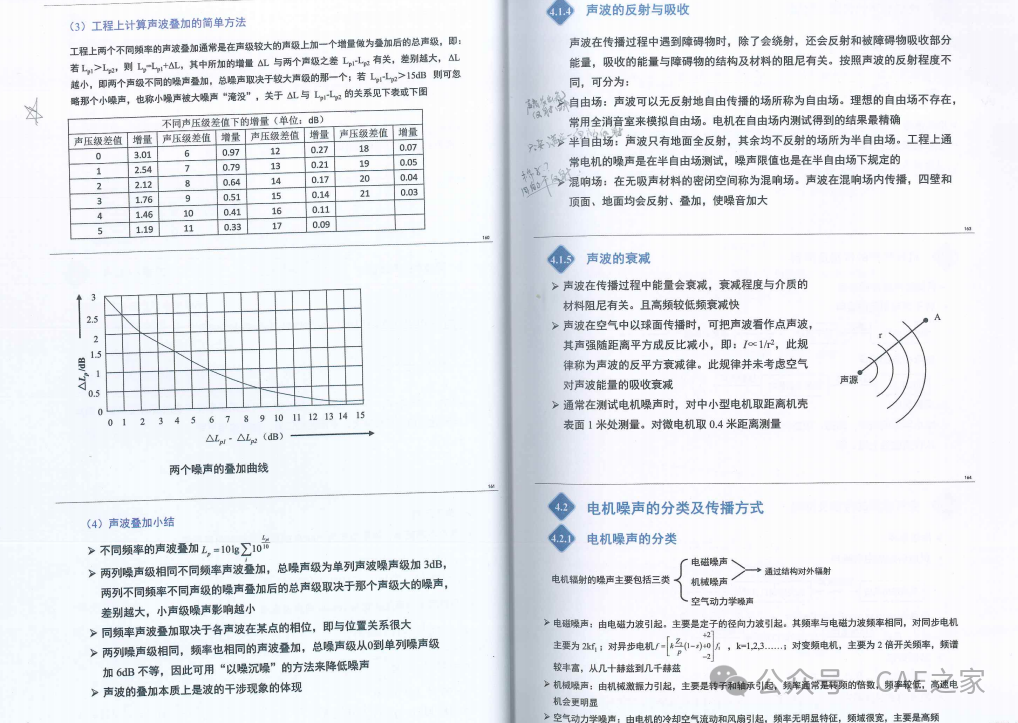 （3）工程上计算声波叠加的简单方法
工程上两个不同频率的声波叠加通常是在声级较大的声级上加一个增量做为叠加后的总声级，即：
若 Lp1＞Lp2，则 Lp=Lp1+ΔL，其中所加的增量 ΔL 与两个声级之差 Lp1-Lp2 有关，差别越大，ΔL
越小，即两个声级不同的噪声叠加，总噪声取决于较大声级的那一个；若 Lp1-Lp2＞15dB 则可忽
略那个小噪声，也称小噪声被大噪声“淹没”，关于 ΔL 与 Lp1-Lp2 的关系见下表或下图
不同声压级差值下的增量（单位：dB）
声压级差值 增量 声压级差值 增量 声压级差值 增量 声压级差值 增量
0 3.01 6 0.97 12 0.27 18 0.07
1 2.54 7 0.79 13 0.21 19 0.05
2 2.12 8 0.64 14 0.17 20 0.04
3 1.76 9 0.51 15 0.14 21 0.03
4 1.46 10 0.41 16 0.11
5 1.19 11 0.33 17 0.09
160
3
2.5
2
1.5
1
0.5
0
ΔLp/dB
0 1 2 3 4 5 6 7 8 9 10 11 12 13 14 15
△Lp1 - △Lp2（dB）
两个噪声的叠加曲线
161
（4）声波叠加小结
➢ 不同频率的声波叠加 Lp=10lg∑i10^(Lpi/10)
➢ 两列噪声级相同不同频率声波叠加，总噪声级为单列波噪声级加 3dB，
两列不同频率不同声级的噪声叠加后的总声级取决于那个声级大的噪声，
差别越大，小声级噪声影响越小
➢ 同频率声波叠加取决于各声波在某点的相位，即与位置关系很大
➢ 两列噪声级相同，频率也相同的声波叠加，总噪声级从0到单列噪声级
加 6dB 不等，因此可用“以噪沉噪”的方法来降低噪声
➢ 声波的叠加本质上是波的干涉现象的体现
4.1.4 声波的反射与吸收
声波在传播过程中遇到障碍物时，除了会绕射，还会反射和被障碍物吸收部分
能量，吸收的能量与障碍物的结构及材料的阻尼有关。按照声波的反射程度不
同，可分为：
自由场：声波可以无反射地自由传播的场所称为自由场。理想的自由场不存在，
常用全消音室来模拟自由场。电机在自由场内测试得到的结果最精确
➢ 半自由场：声波只有地面全反射，其余均不反射的场所为半自由场。工程上通
常电机的噪声是在半自由场测试，噪声限值也是在半自由场下规定的
➢ 混响场：在无吸声材料的密闭空间称为混响场。声波在混响场内传播，四壁和
顶面、地面均会反射、叠加，使噪音加大
163
4.1.5 声波的衰减
➢ 声波在传播过程中能量会衰减，衰减程度与介质的
材料阻尼有关。且高频较低频衰减快
➢ 声波在空气中以球面传播时，可把声波看作点声波，
其声强随距离平方成反比减小，即：I∝1/r²，此规
律称为声波的反平方衰减律。此规律并未考虑空气
对声波能量的吸收衰减
➢ 通常在测试电机噪声时，对中小型电机取距离机壳
表面 1 米处测量。对微电机取 0.4 米距离测量
A
r
声源
164
4.2 电机噪声的分类及传播方式
4.2.1 电机噪声的分类
电机辐射的噪声主要包括三类
电磁噪声
机械噪声
空气动力学噪声
通过结构对外辐射
➢ 电磁噪声：由电磁力波引起。主要是定子的径向力波引起。其频率与电磁力波频率相同，对同步电机
主要为 2kf1；对异步电机f=[k Z2/p (1−s)+0 +2 −2]f1，k=1,2,3……；对变频电机，主要为 2 倍开关频率，频谱
较丰富，从几十赫兹到几千赫兹
➢ 机械噪声：由机械激振力引起，主要是转子和轴承引起，频率通常是转频的倍数，频率较低，高速电
机会更明显
➢ 空气动力学噪声：由电机的冷却空气流动和风扇引起，频率无明显特征，频域很宽，主要是高频
公众号 · CAE之家